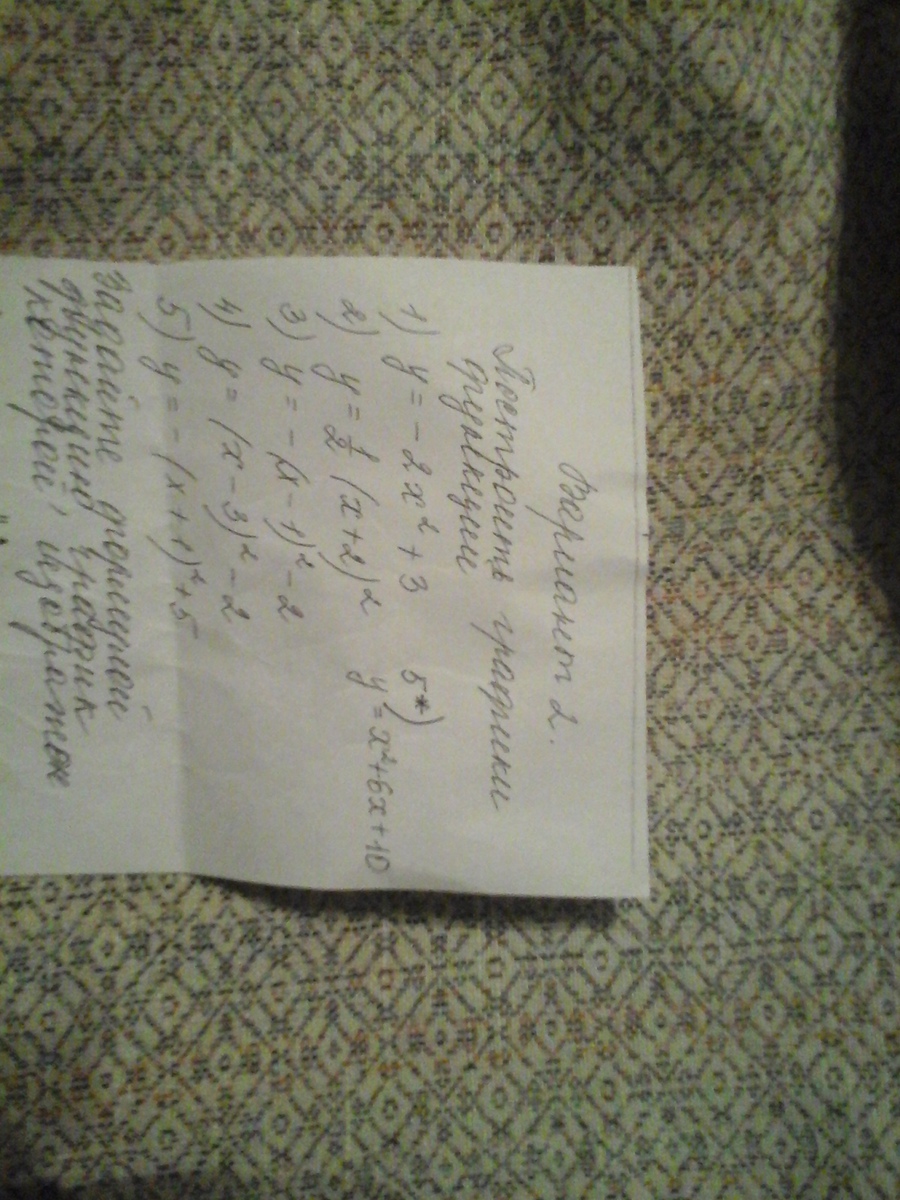 Вариант 2.
Построить графики
функции
1) y = - 2x² + 3
2) y = 1/2 (x + 2)²
3) y = - (x - 1)² - 2
4) y = (x - 3)² - 2
5) y = - (x + 1)² + 5
5*)
y = x² + 6x + 10
Задайте формулой
функцию, график
которой, изображён